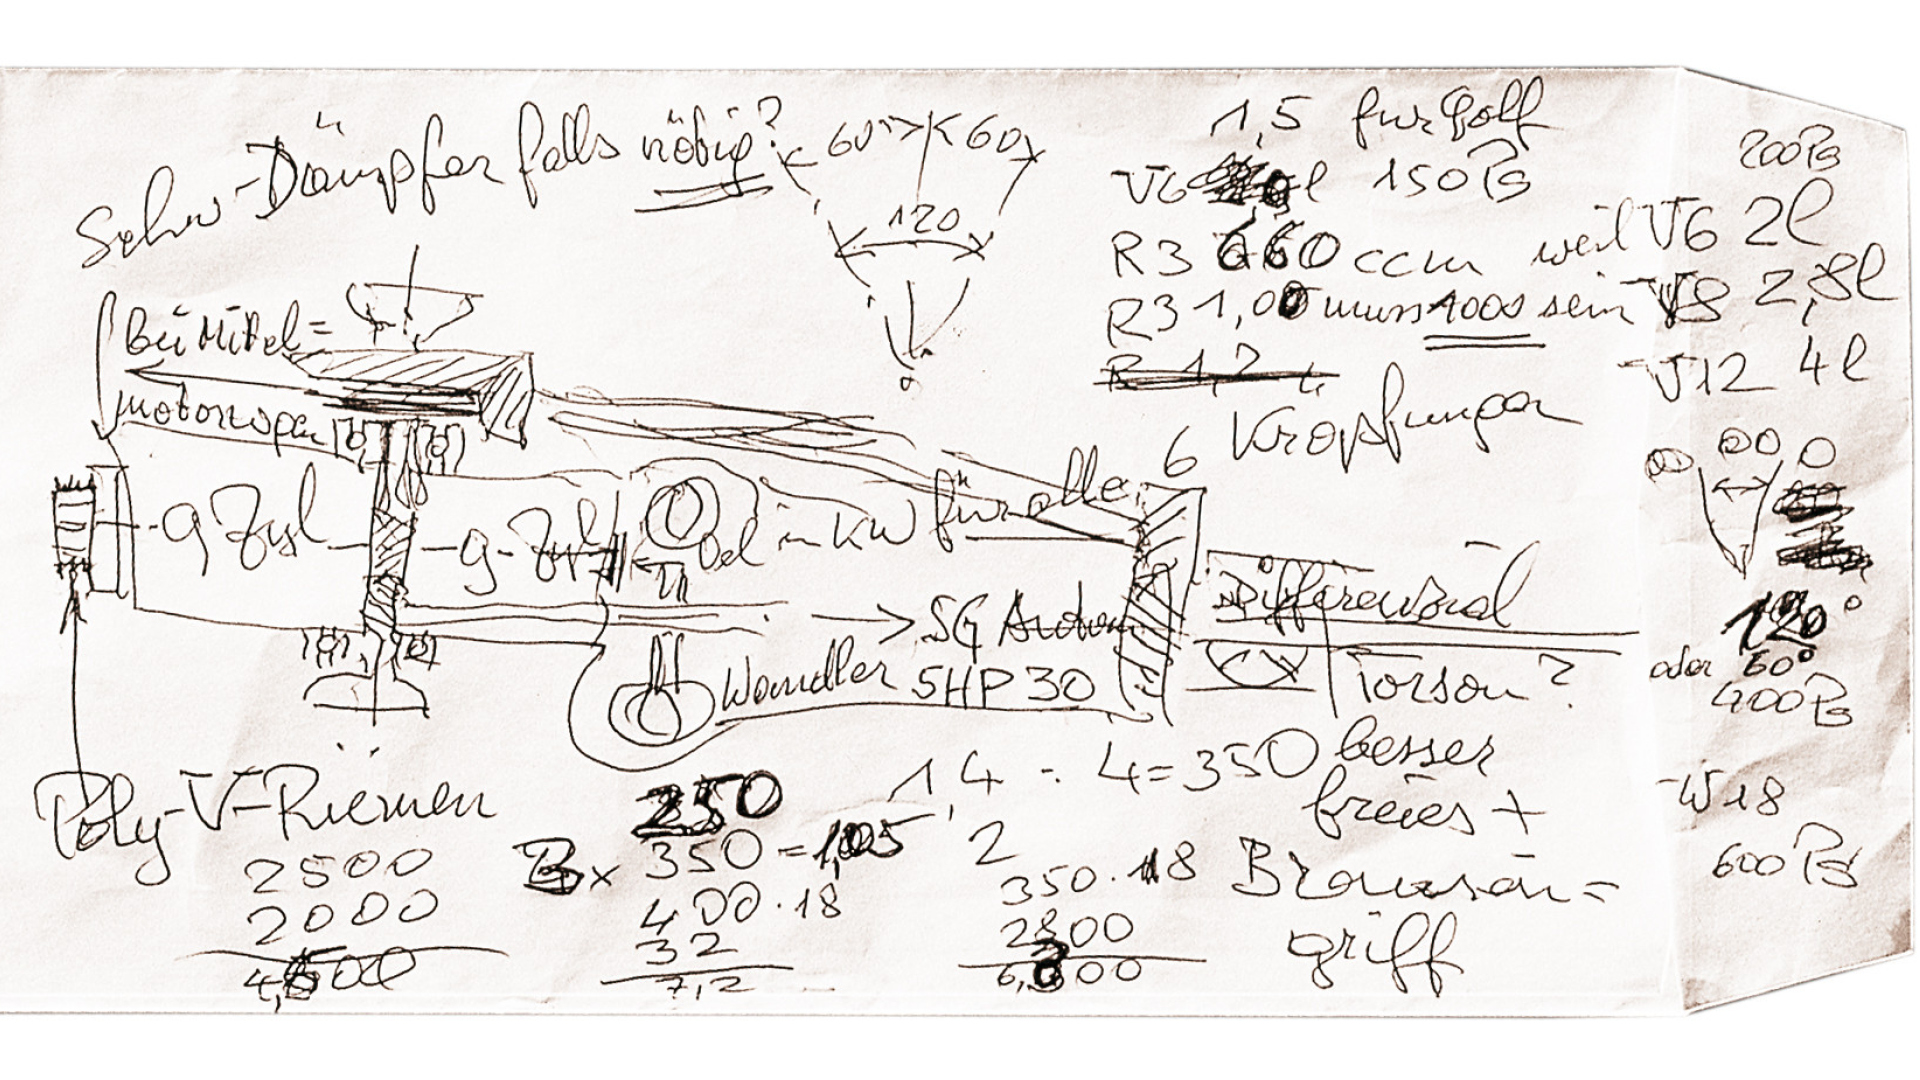 Schw-Dämpfer falls nötig?
60° 60
120
1,5 für Golf
V6 l 150PS
R3 660 ccm weil V6 2l
R3 1,00 muss 1000 sein V8 2,8l
R 1,2
V12 4l
200PS
6 Kröpfungen
Bei Mittel=
motorwagen
9 Zyl
9-Zyl
Oel in KW für alle
SG Autom
Wandler 5HP30
Differenzial
Torson?
120°
oder 60°
400PS
Poly-V-Riemen
2500
2000
4,500
250
350 = 1,05
400 · 18
32
7,2
1,4 : 4 = 350
2
350 · 18
2800
6,300
besser
freies +
Bronsin=
griff
W18
600 PS